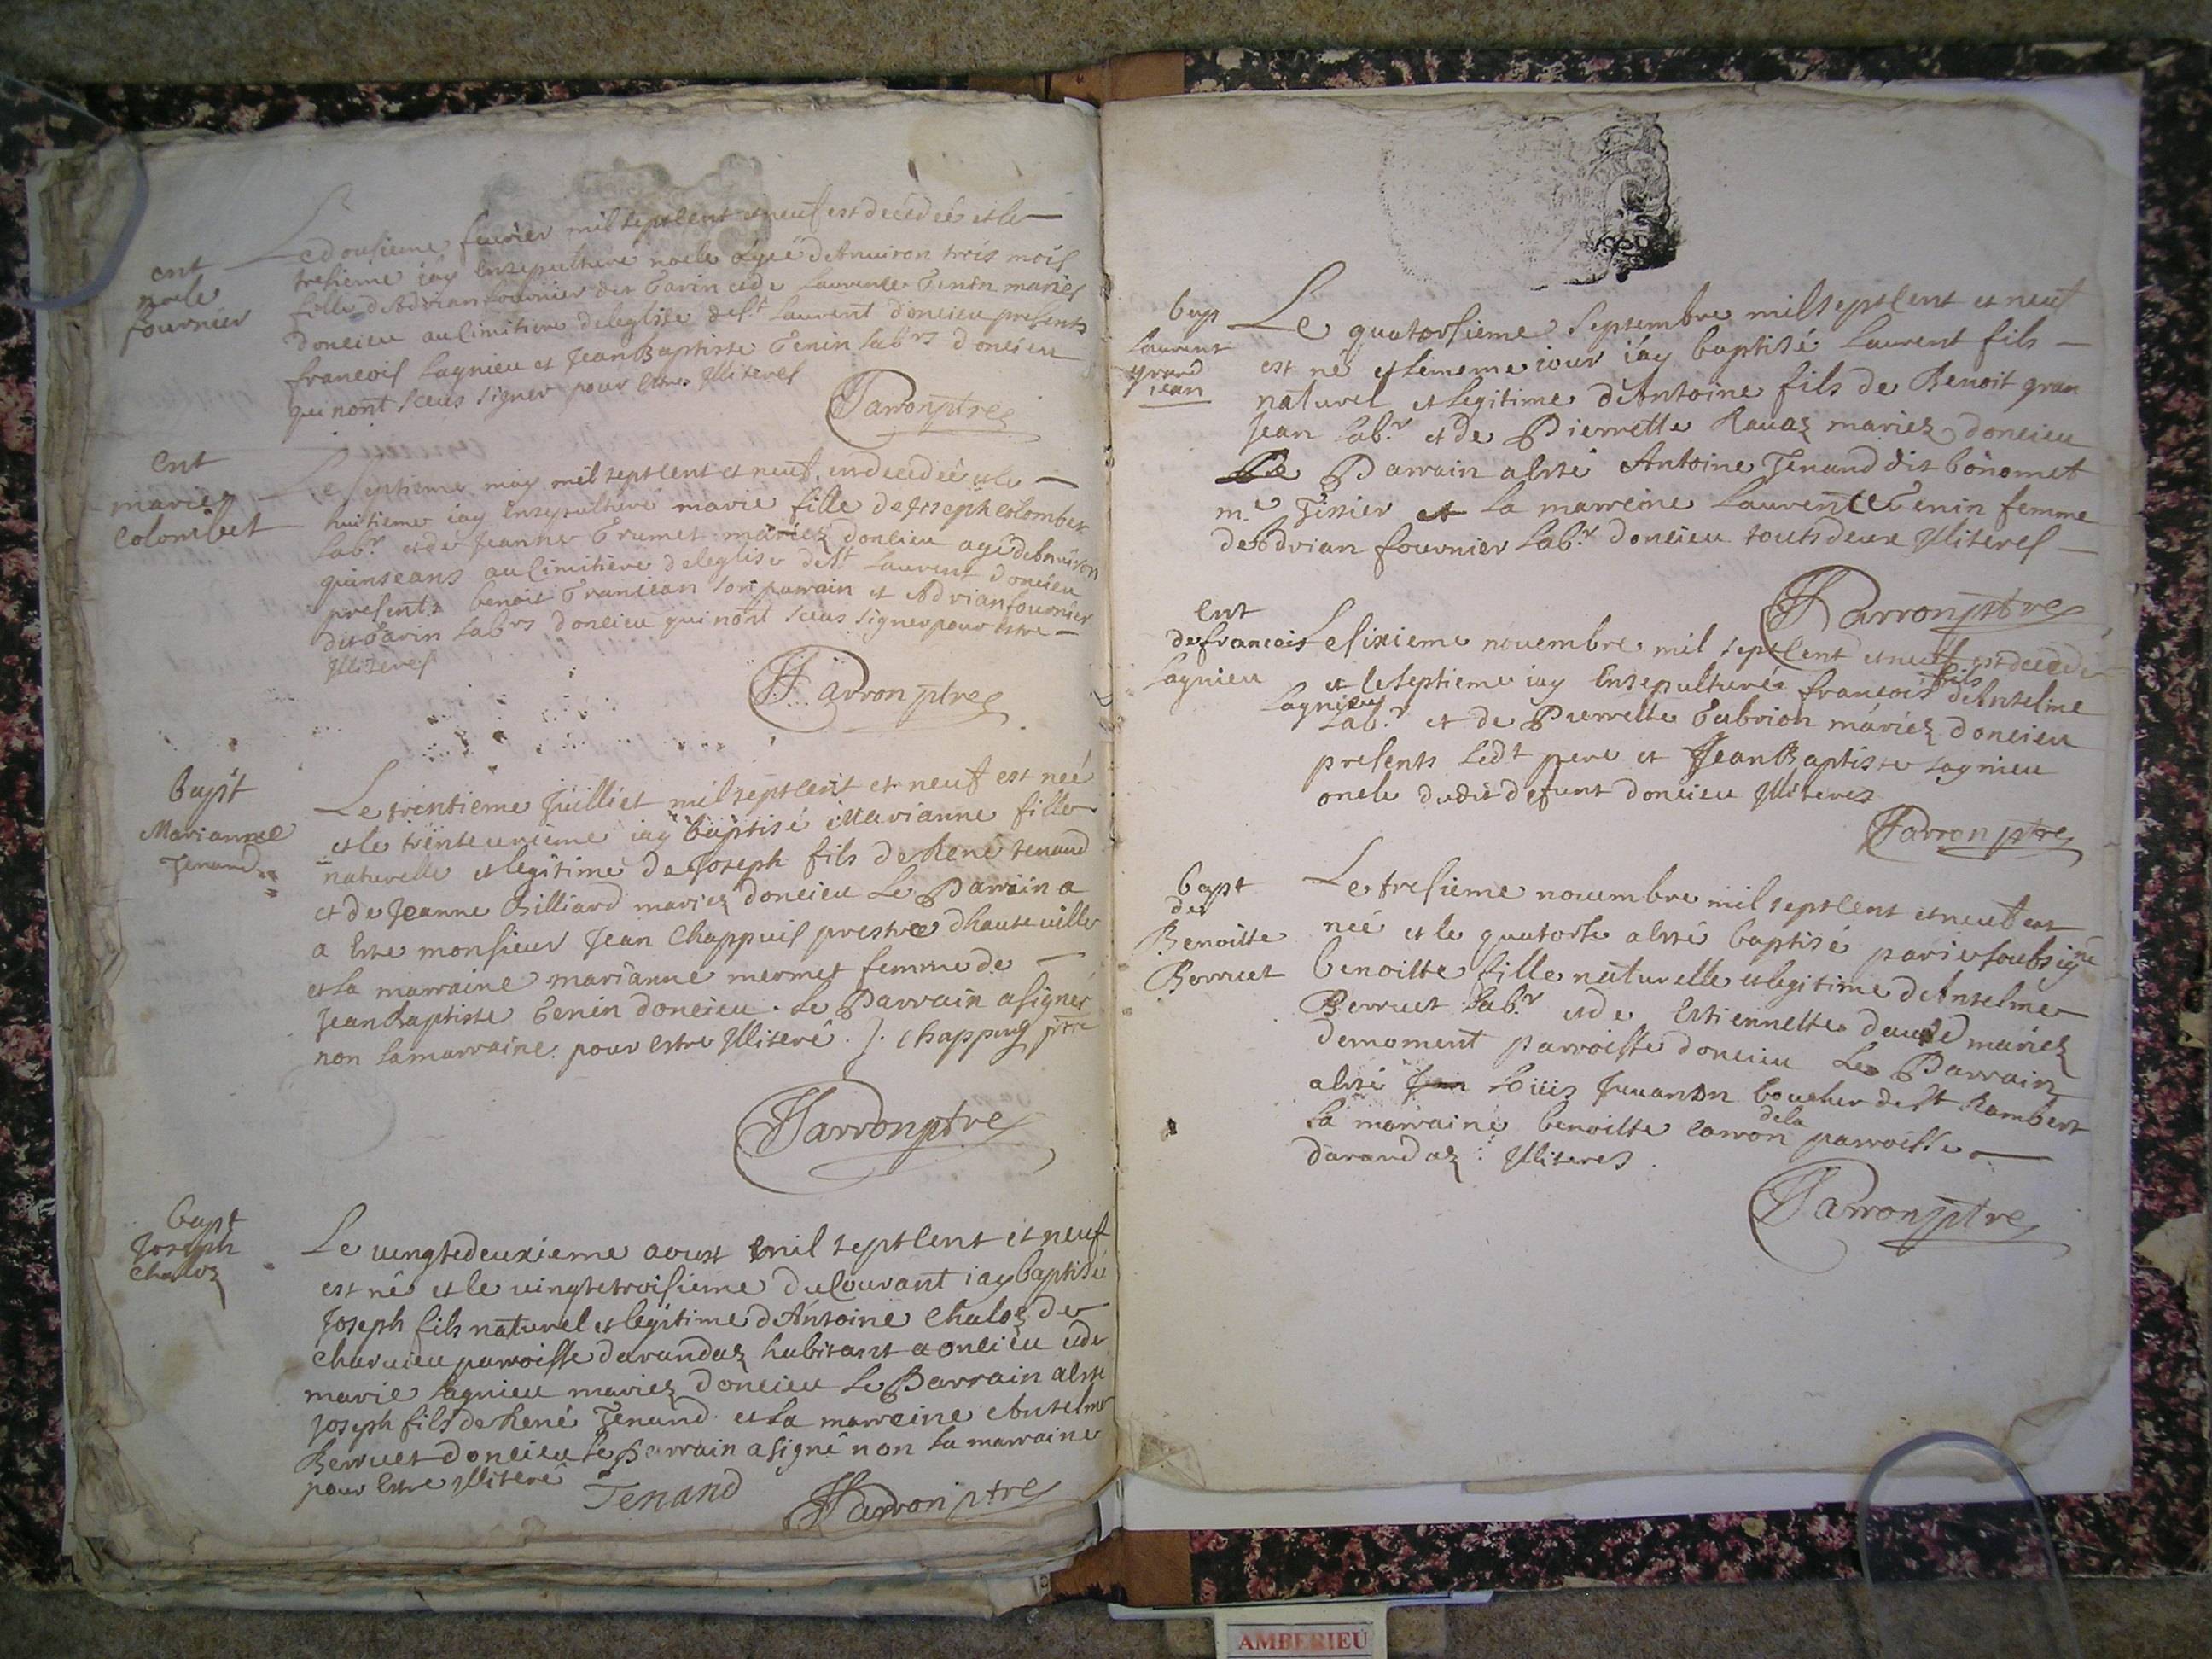 ent
noele
fournier
Le dousieme feurier mil sept cent et neuf est decedeé et le
tresieme iay ensepulturé noele ageé d'enuiron trois mois
fille d'Adrian fournier dit Tavin et de Laurence Tenin mariés
d'oncieu au cimitiere de l'eglise de St Laurent d'oncieu presents
francois Lagnieu et Jean Baptiste Tenin labrs d'oncieu
qui n'ont sceus signer pour estre Illiterés
Jarron ptre
ent
marie
Colombet
Le septieme may mil sept cent et neuf decedeé et le
huitieme iay ensepulturé marie fille de Joseph Colombet
labr et de Jeanne Trumet mariez d'oncieu agé d'enuiron
quinse ans au cimitiere de l'eglise de St Laurent d'oncieu
presents benoit son parrain et Adrian fournier
dit Tavin labrs d'oncieu qui n'ont sceus signer pour estre
Illiterés
Jarron ptre
bapt
Marianne
Tenand
Le trentieme Juilliet mil sept cent et neuf est neé
et le trenteunieme iay baptisé Marianne fille
naturelle et legitime de Joseph fils de René tenand
et de Jeanne Billiard mariez d'oncieu Le Parrain a
a este monsieur Jean Chappuis prestre d'hauteuille
et la marraine marianne mermet femme de
Jean Baptiste Tenin d'oncieu. Le Parrain a signer
non la marraine pour estre Illiteré. J. Chappuy ptre
Jarron ptre
bapt
Joseph
Chaloz
Le uingtedeuxieme aoust mil sept cent et neuf
est né et le uingtetroisieme du courant iay baptisé
Joseph fils naturel et legitime d'Antoine Chaloz de
Charuieu parroisse d'arandaz habitant a oncieu et de
marie Lagnieu mariez d'oncieu Le Parrain a esté
Joseph fils de René Tenand et la marreine Anselme
Berruet d'oncieu le Parrain a signé non la marraine
pour estre Illiteré
Tenand
Jarron ptre
bap
Laurent
grand
iean
Le quatorsieme Septembre mil sept cent et neuf
est né et le meme iour iay baptisé Laurent fils
naturel et legitime d'Antoine fils de Benoit gran
Jean labr et de Pierrette Rauaz mariez d'oncieu
Le Parrain a esté Antoine Tenand dit bonomet
me Tissier et la marreine Laurence Tenin femme
de Adrian fournier labr d'oncieu touts deux Illiterés
Jarron ptre
ent
de francois
Lagnieu
Le sixieme nouembre mil sept cent et neuf est decedé
et le septieme iay ensepulturé francois fils d'Anselme
Lagnieu labr et de Pierrette Tubrion mariez d'oncieu
presents led't pere et Jean Baptiste Lagnieu
oncle dudit defunt d'oncieu Illiterez
Jarron ptre
bapt
de
Benoitte
Berruet
Le tresieme nouembre mil sept cent et neuf est
neé et le quatorse a esté baptisé par ie soubsigné
benoitte fille naturelle et legitime d'Anselme
Berruet labr et de Estiennette mariez
demoment parroisse d'oncieu Le Parrain
a esté Jean Loüis Juuanon boucher de St Rambert
La marraine benoitte Carron de la parroisse
d'arandaz : Illiterés
Jarron ptre
AMBERIEU